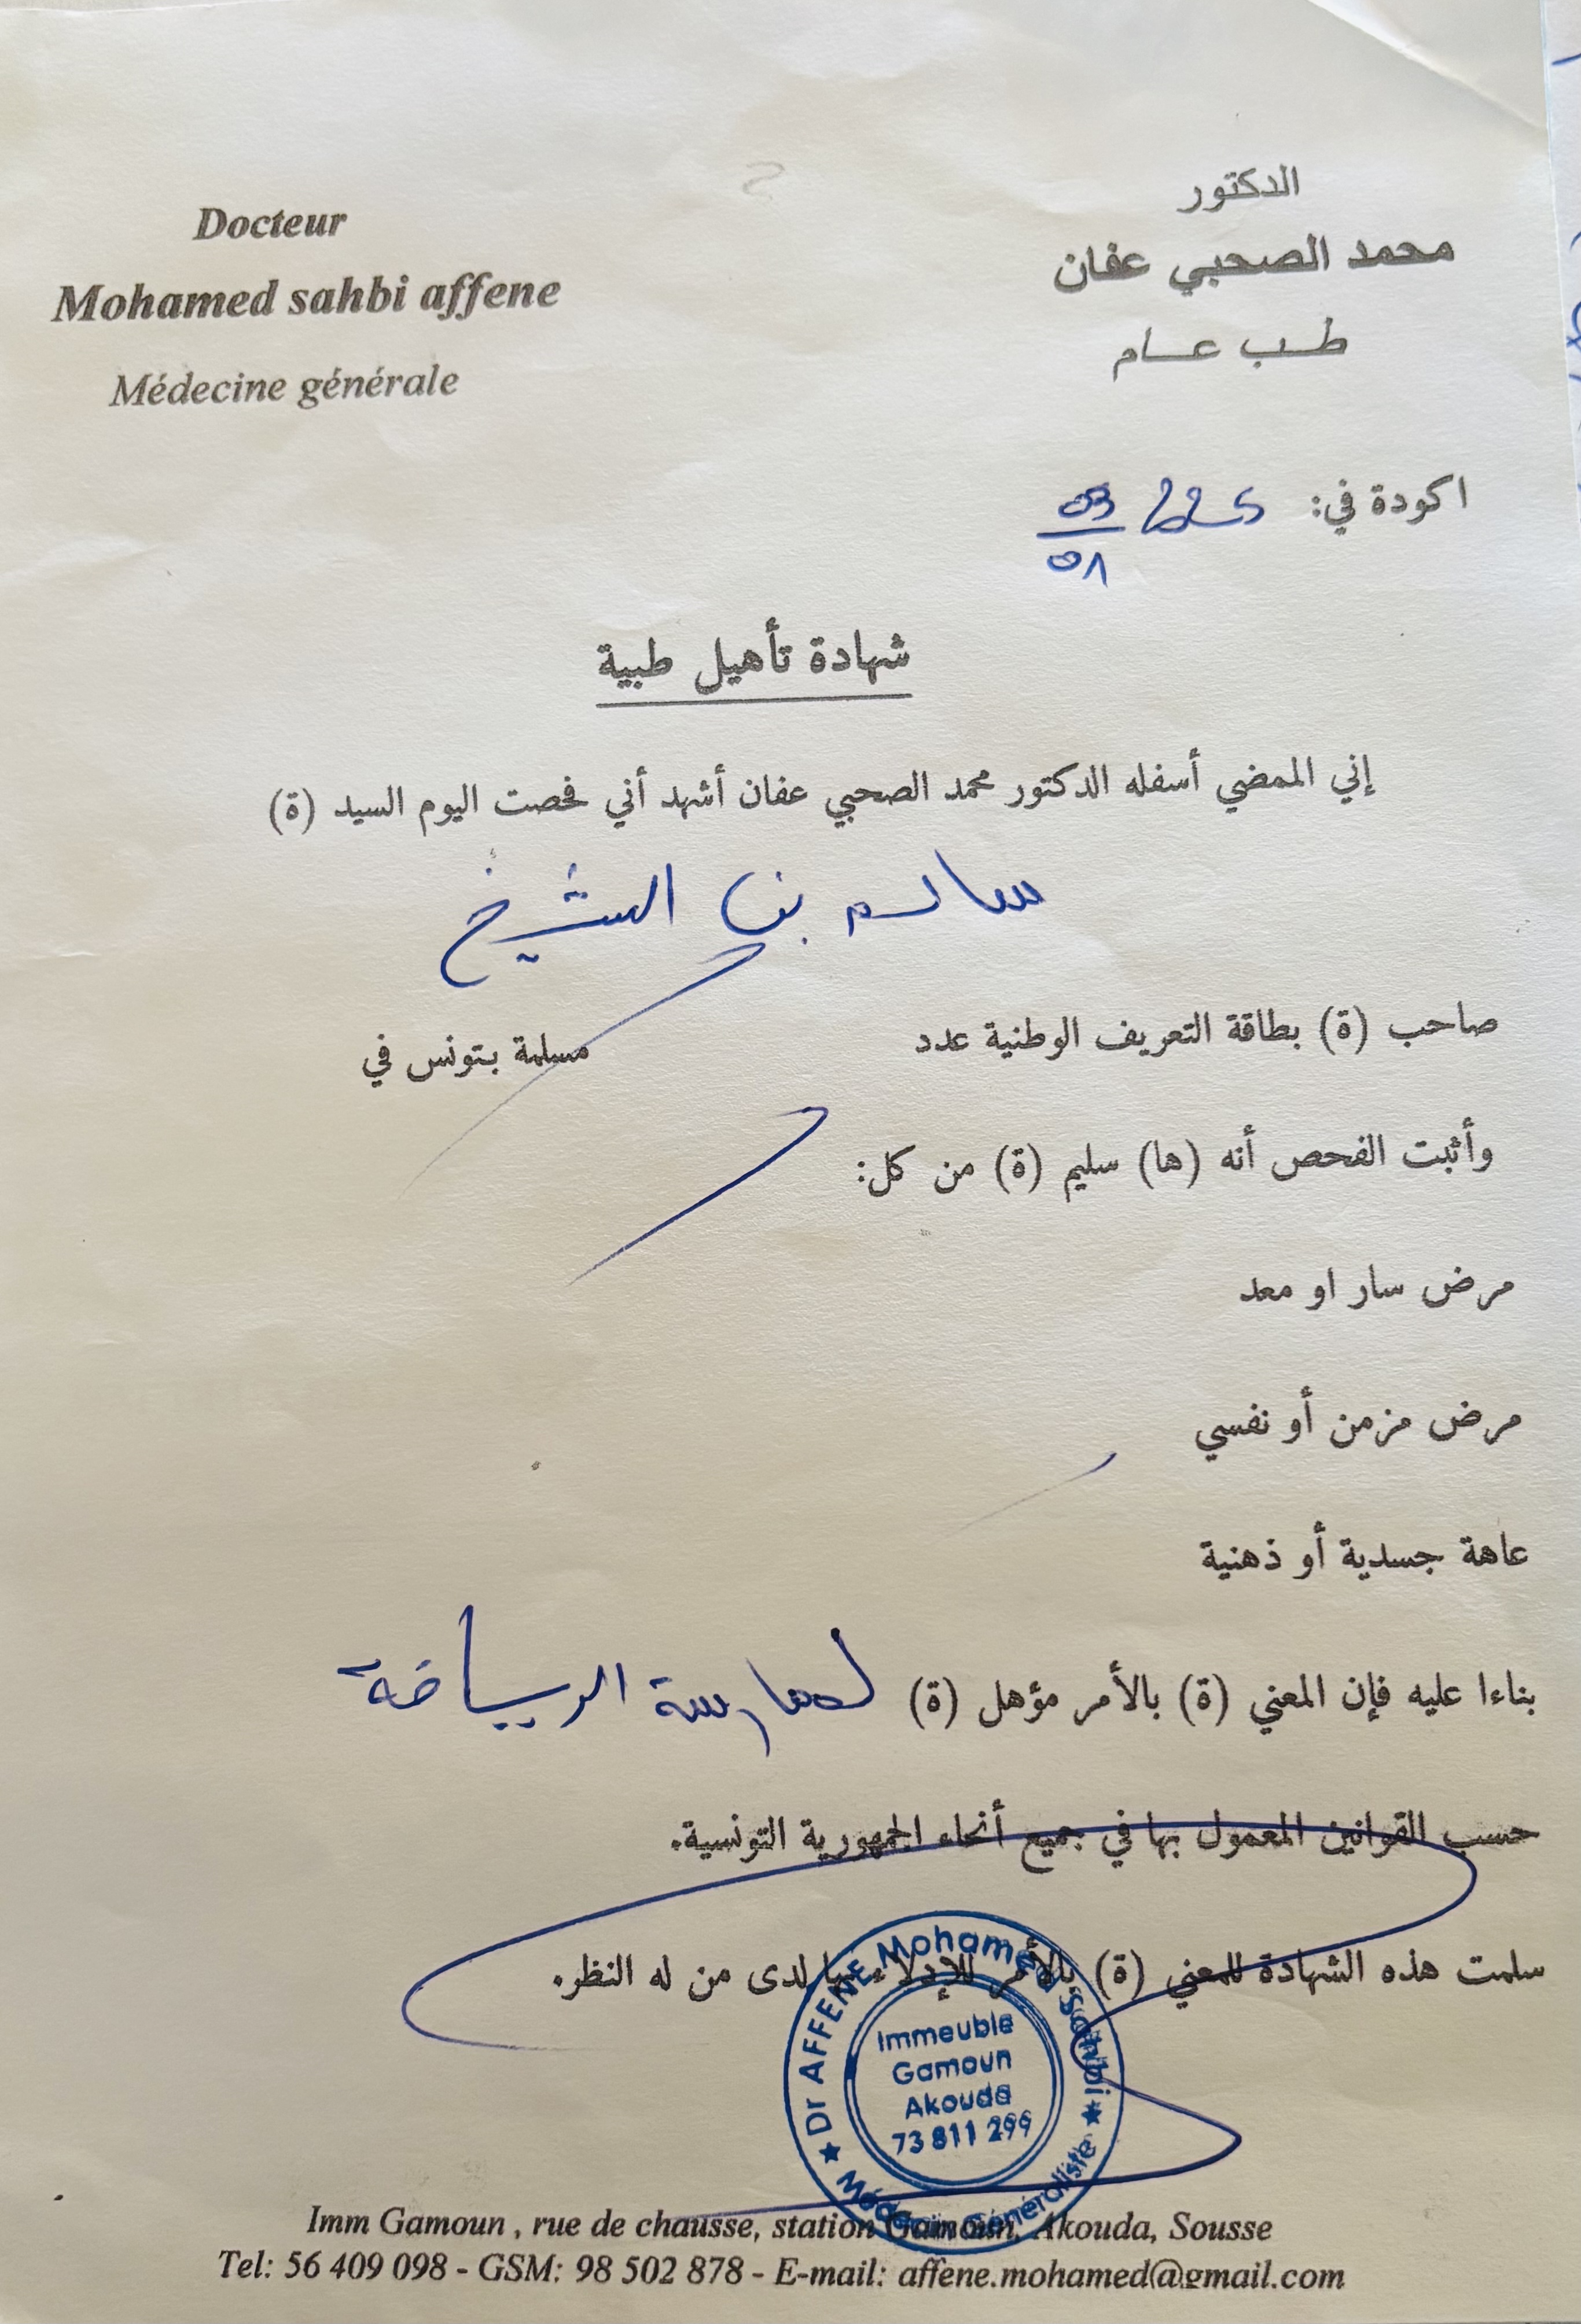 Docteur
Mohamed sahbi affene
Médecine générale
الدكتور
محمد الصحبي عفان
طب عام
اكودة في: 03/01
شهادة تأهيل طبية
إني الممضي أسفله الدكتور محمد الصحبي عفان أشهد أني فحصت اليوم السيد (ة)
سالم بن الشيخ
صاحب (ة) بطاقة التعريف الوطنية عدد مسلمة بتونس في
وأثبت الفحص أنه (ها) سليم (ة) من كل:
مرض سار او معد
مرض مزمن أو نفسي
عاهة جسدية أو ذهنية
بناءا عليه فإن المعني (ة) بالأمر مؤهل (ة) لممارسة الرياضة
حسب القوانين المعمول بها في جميع أنحاء الجمهورية التونسية.
سلمت هذه الشهادة للمعني (ة) بالأمر للإدلاء بها لدى من له النظر.
Dr AFFENE Mohamed Sahbi
Immeuble
Gamoun
Akouda
73 811 299
Médecin Généraliste
Imm Gamoun , rue de chausse, station Gamoun, Akouda, Sousse
Tel: 56 409 098 - GSM: 98 502 878 - E-mail: affene.mohamed@gmail.com